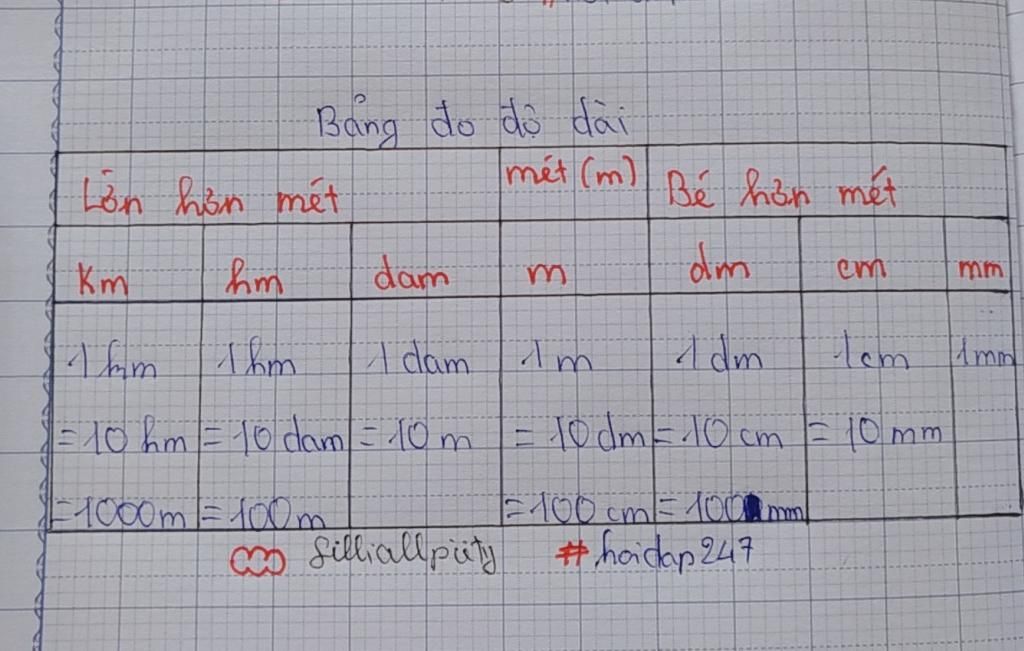 Bảng đo độ dài
Lớn hơn mét mét (m) Bé hơn mét
Km hm dam m dm cm mm
1 hm 1 hm 1 dam 1 m 1 dm 1 cm 1 mm
= 10 hm = 10 dam = 10 m = 10 dm = 10 cm = 10 mm
= 1000m = 100m = 100 cm = 100 mm
#hoidap247